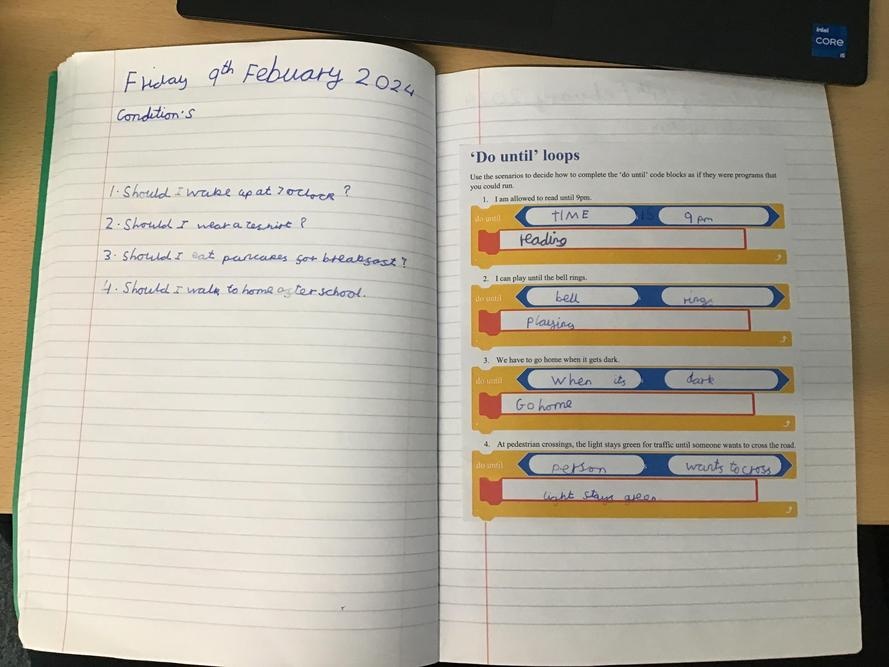 intel
CORE
i5
Friday 9th Febuary 2024
Condition's
1. Should I wake up at 7 oclock ?
2. Should I wear a teshirt ?
3. Should I eat pancakes for breakfast ?
4. Should I walk to home after school.
'Do until' loops
Use the scenarios to decide how to complete the 'do until' code blocks as if they were programs that
you could run.
1. I am allowed to read until 9pm.
do until TIME IS 9pm
reading
2. I can play until the bell rings.
do until bell rings
Playing
3. We have to go home when it gets dark.
do until when its dark
Go home
4. At pedestrian crossings, the light stays green for traffic until someone wants to cross the road.
do until person wants to cross
light stays green